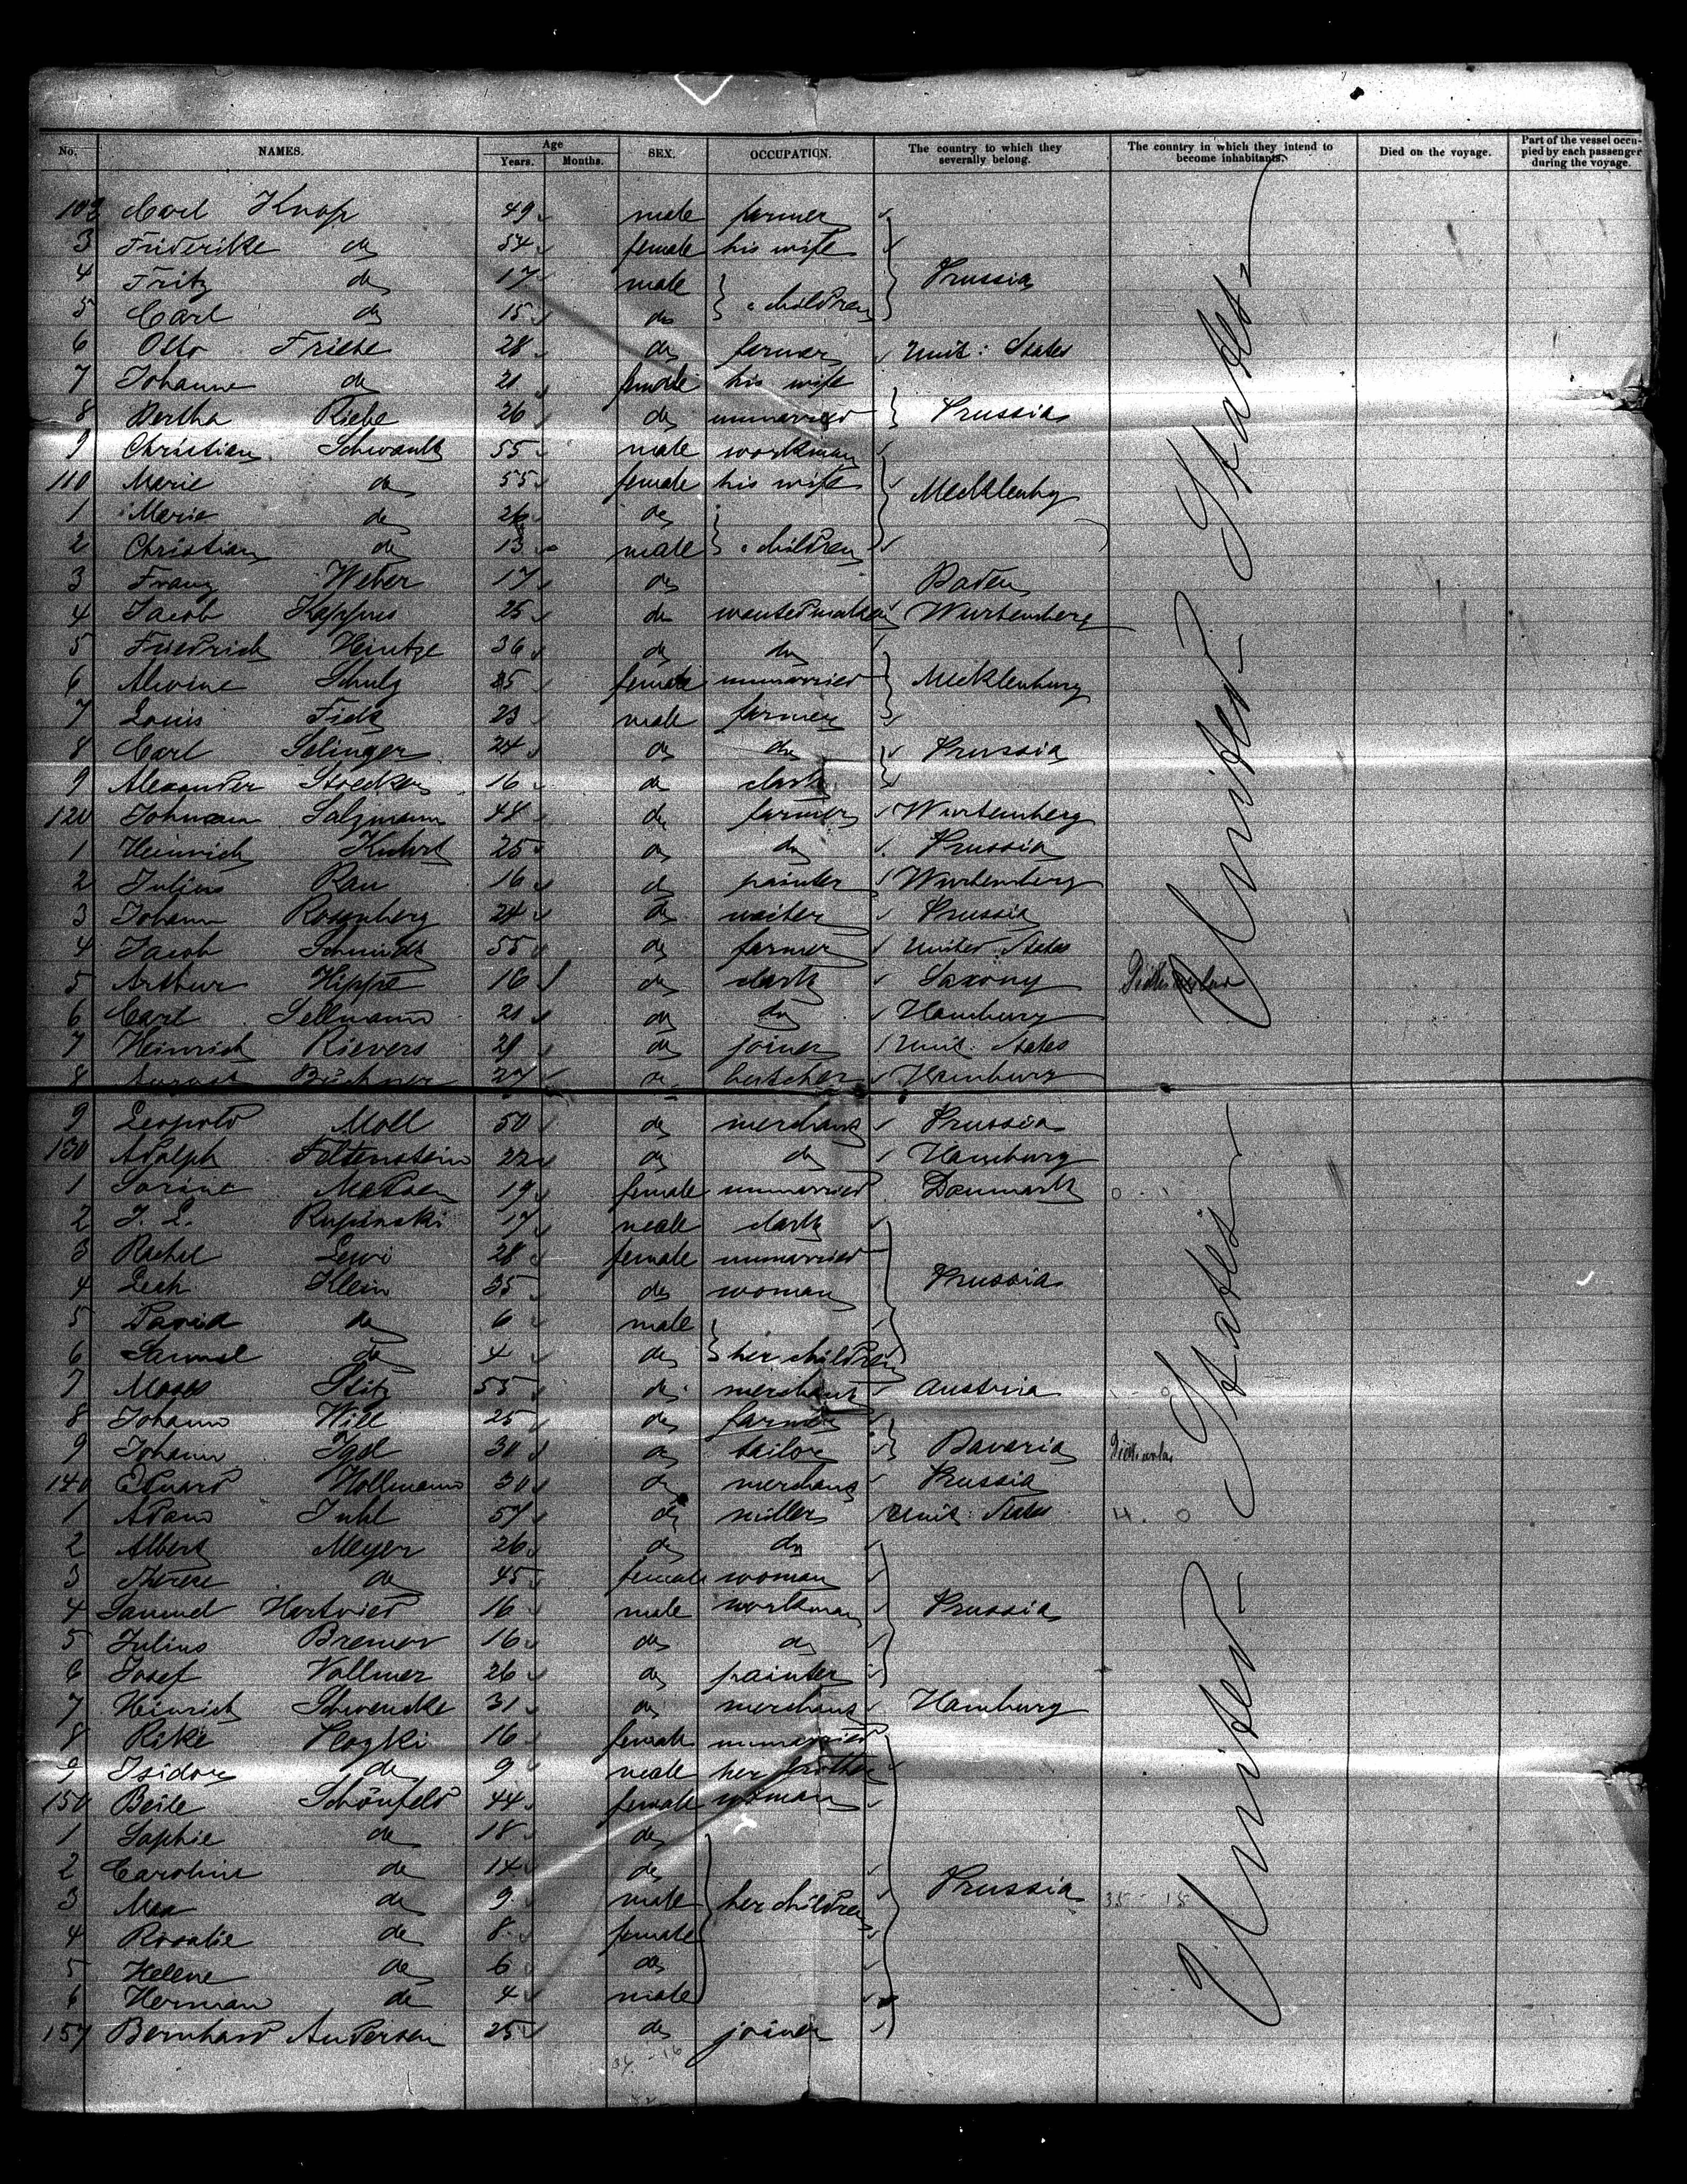 No. NAMES. Age Years. Months. SEX. OCCUPATION. The country to which they severally belong. The country in which they intend to become inhabitants. Died on the voyage. Part of the vessel occupied by each passenger during the voyage.
102 Carl Knop 49 male farmer
3 Friderike do 54 female his wife
4 Fritz do 17 male Prussia
5 Carl do 15 do children
6 Otto Friebe 28 do farmer Unit: States
7 Johanne do 21 female his wife
8 Bertha Riebe 26 do unmarried Prussia
9 Christian Schwank 55 male workman
110 Marie do 55 female his wife Mecklenbg
1 Marie do 26 do
2 Christian do 13 male children
3 Franz Weber 17 do Baden
4 Jacob Kappus 25 do Wurtemberg
5 Friedrich Hintze 36 do do
6 Alwine Schulz 25 female unmarried Mecklenburg
7 Louis Fick 23 male farmer
8 Carl Salinger 24 do do Prussia
9 Alexander Stoecker 16 do clark
120 Johann Salzmann 48 do farmer Wurtemberg
1 Heinrich Kuhrt 25 do do Prussia
2 Julius Rau 16 do painter Wurtemberg
3 Johann Rosenberg 24 do waiter Prussia
4 Jacob Schmidt 55 do farmer United States
5 Arthur Hippe 16 do clark Saxony
6 Carl Sellmann 21 do do Hamburg
7 Heinrich Rievers 29 do joiner Unit: States
8 August Büchner 27 do butcher Hamburg
9 Leopold Moll 50 do merchant Prussia
130 Adolph Feltenstein 22 do do Hamburg
1 Sorine Madsen 19 female unmarried Danmark
2 J. L. Rupinski 17 male clark
3 Rachel Lewi 28 female unmarried
4 Leah Klein 35 do woman Prussia
5 David do 6 male
6 Samuel do 4 do her children
7 Moses Stitz 55 do merchant Austria
8 Johann Will 25 do farmer
9 Johann Igel 30 do tailor Bavaria
140 Eduard Hollmann 30 do merchant Prussia
1 Adam Juhl 57 do miller Unit: States
2 Albert Meyer 26 do do
3 Therese do 45 female woman
4 Samuel Hartwied 16 male workman Prussia
5 Julius Bremer 16 do do
6 Josef Vollmer 26 do painter
7 Heinrich Schwencke 31 do merchant Hamburg
8 Rike Rogki 16 female unmarried
9 Isidore do 9 male her brother
150 Beile Schönfeld 44 female woman
1 Sophie do 18 do
2 Caroline do 14 do
3 Max do 9 male her children Prussia
4 Rosalie do 8 female
5 Helene do 6 do
6 Herman do 4 male
157 Bernhard Andersen 25 do joiner
United States
United States